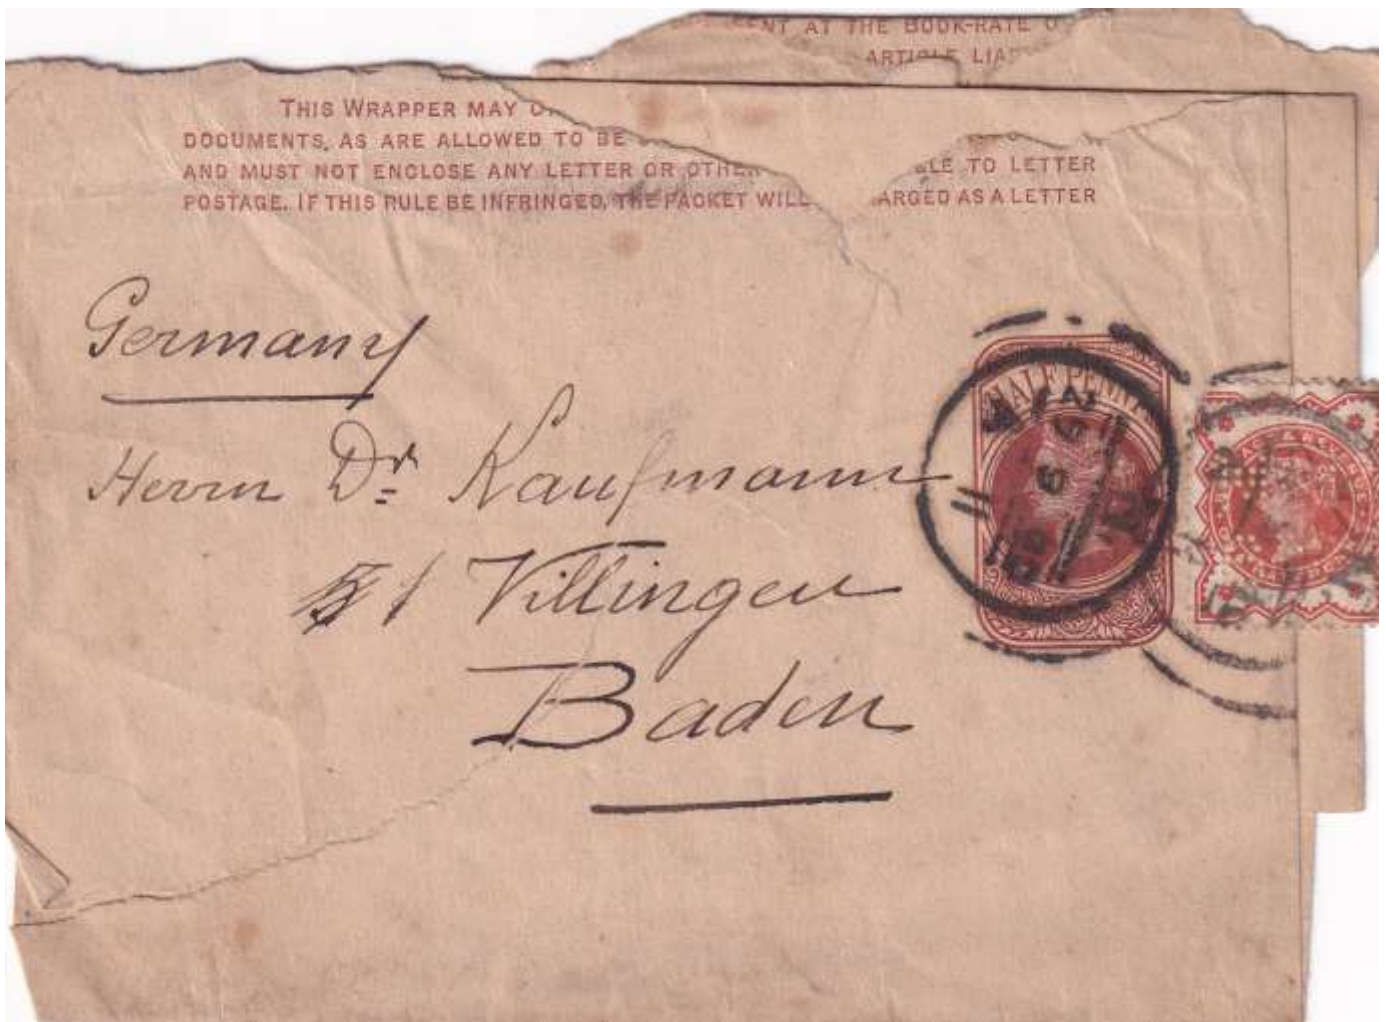 ENT AT THE BOOK-RATE O
ARTICLE LIA
THIS WRAPPER MAY O
DOCUMENTS, AS ARE ALLOWED TO BE
AND MUST NOT ENCLOSE ANY LETTER OR OTHER BLE TO LETTER
POSTAGE. IF THIS RULE BE INFRINGED, THE PACKET WILL ARGED AS A LETTER
Germany
Herrn Dr. Kaufmann
Villingen
Baden
HALFPENNY